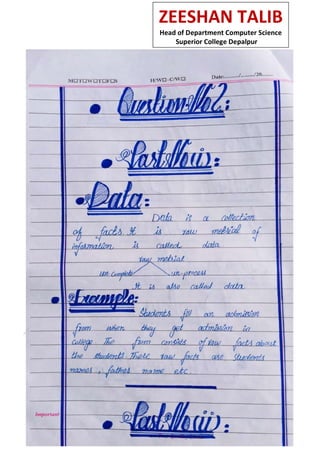 ZEESHAN TALIB
Head of Department Computer Science
Superior College Depalpur
M□T□W□T□F□S H/W□-C/W□ Date:____/____/20__
Question No 2:
Part No i:
Data:
Data is a collection
of facts. It is raw metrial of
information is called data
raw metrial
un complete un-process
It is also called data.
Example:
Students fill an admission
from when they get admission in
college The form consists of raw facts about
the students These raw facts are students
names, father name etc.
Important
Part No ii: